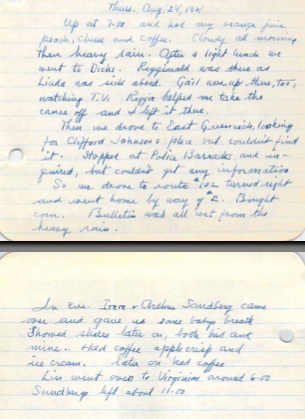 Thurs. Aug. 24, 19
Up at 7:00 and had my orange juice
peach, cheese and coffee. Cloudy all morning
then heavy rain. After a light lunch we
went to Dicks. Regginald was there as
Linda was sick abed. Gail was up there, too,
watching T.V. Reggie helped me take the
canoe off and I left it there.
Then we drove to East Greenwich, looking
for Clifford Johnsons place but couldn't find
it. Stopped at Police Barracks and in-
quired, but couldn't get any information
So we drove to route #102 turned right
and went home by way of #2. Bought
corn. Bulletin was all wet from the
heavy rain.
In Eve. Irere + Arthur Sandberg came
over and gave us some baby breath
Showed slides later on, both his and
mine.. Had coffee apple crisp and
ice cream. Later on had coffee
Lin went over to Virginias around 6:00
Sandbergs left about 11:00